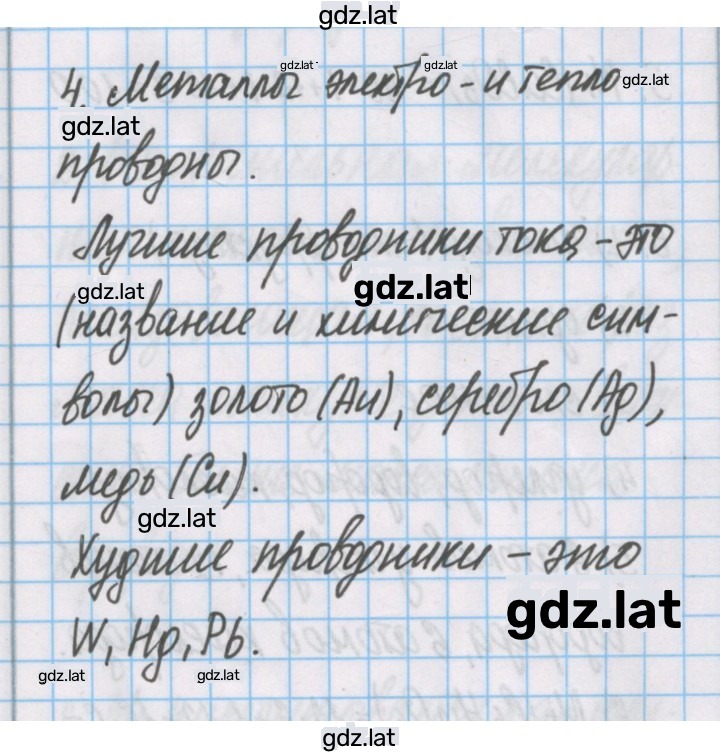 gdz.lat
gdz.lat gdz.lat
4. Металлы электро-и тепло gdz.lat
gdz.lat
проводны.
Лучшие проводники тока - это
gdz.lat gdz.lat
(название и химические сим-
волы) золото (Au), серебро (Ag),
медь (Cu).
gdz.lat
Худшие проводники - это
gdz.lat
W, Hg, Pb.
gdz.lat gdz.lat
gdz.lat